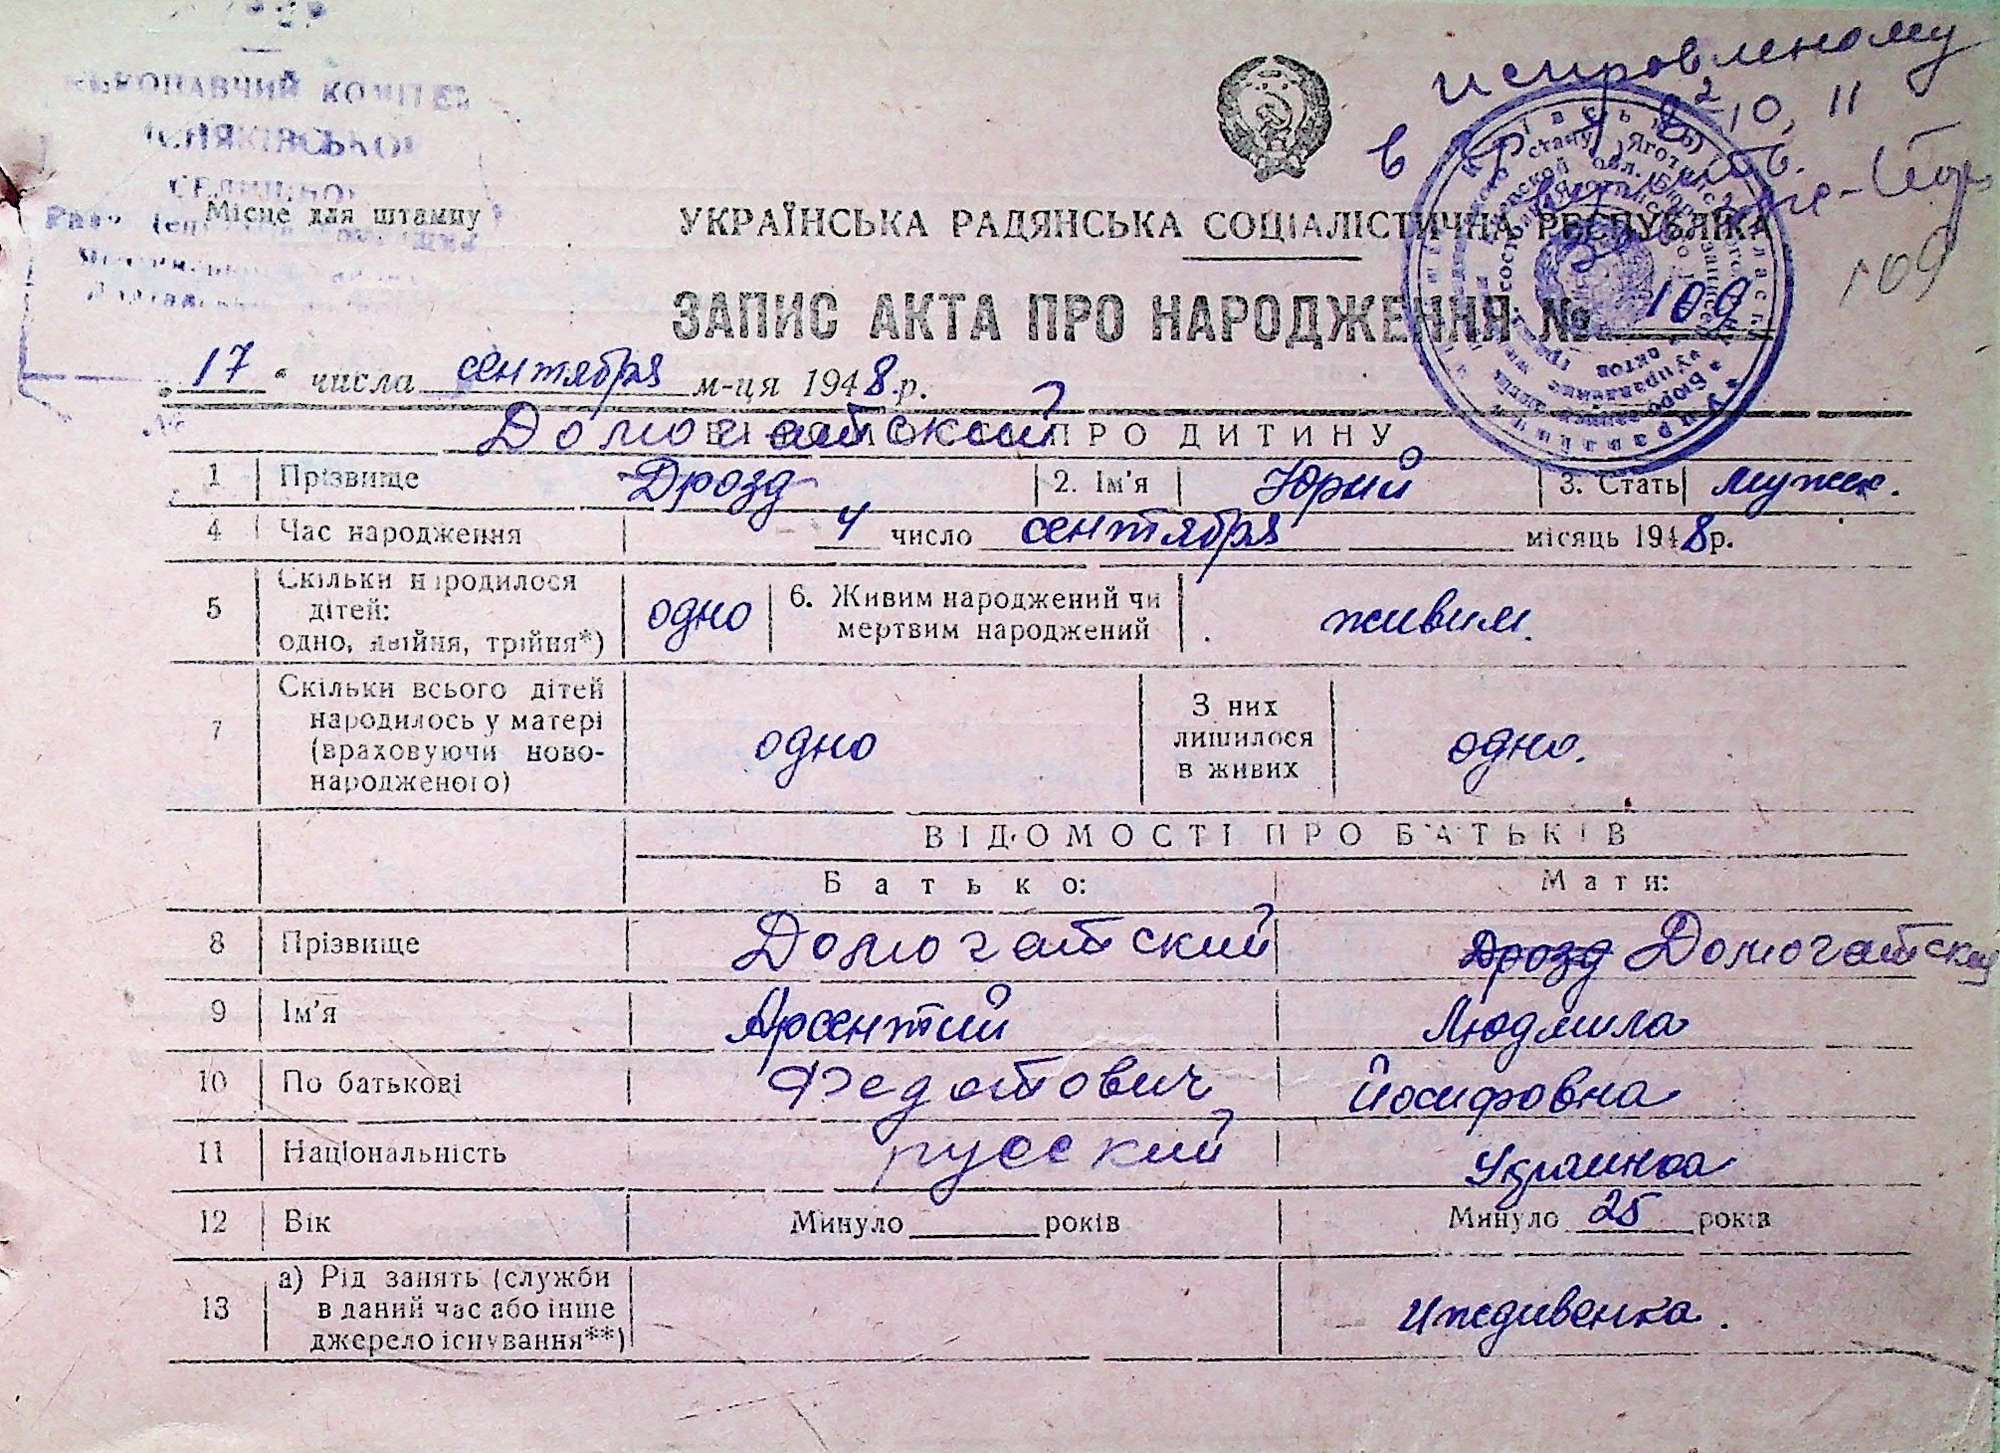 исправленому
в гр. 1, 8, 10, 11
109
Місце для штампу
УКРАЇНСЬКА РАДЯНСЬКА СОЦІАЛІСТИЧНА РЕСПУБЛІКА
ЗАПИС АКТА ПРО НАРОДЖЕННЯ № 109
„17“ числа сентября м-ця 1948 р.
Домогатский
ВІДОМОСТІ ПРО ДИТИНУ
1 Прізвище Дрозд 2. Ім'я Юрий 3. Стать мужск.
4 Час народження 4 число сентября місяць 1948 р.
5 Скільки народилося дітей: одно, двійня, трійня*) одно 6. Живим народжений чи мертвим народжений живим.
7 Скільки всього дітей народилось у матері (враховуючи новонародженого) одно З них лишилося в живих одно.
ВІДОМОСТІ ПРО БАТЬКІВ
Батько: Мати:
8 Прізвище Домогатский Дрозд Домогатская
9 Ім'я Арсентий Людмила
10 По батькові Федотович Йосифовна
11 Національність русский Украинка
12 Вік Минуло ______ років Минуло 25 років
13 а) Рід занять (служби в даний час або інше джерело існування**) Иждивенка.